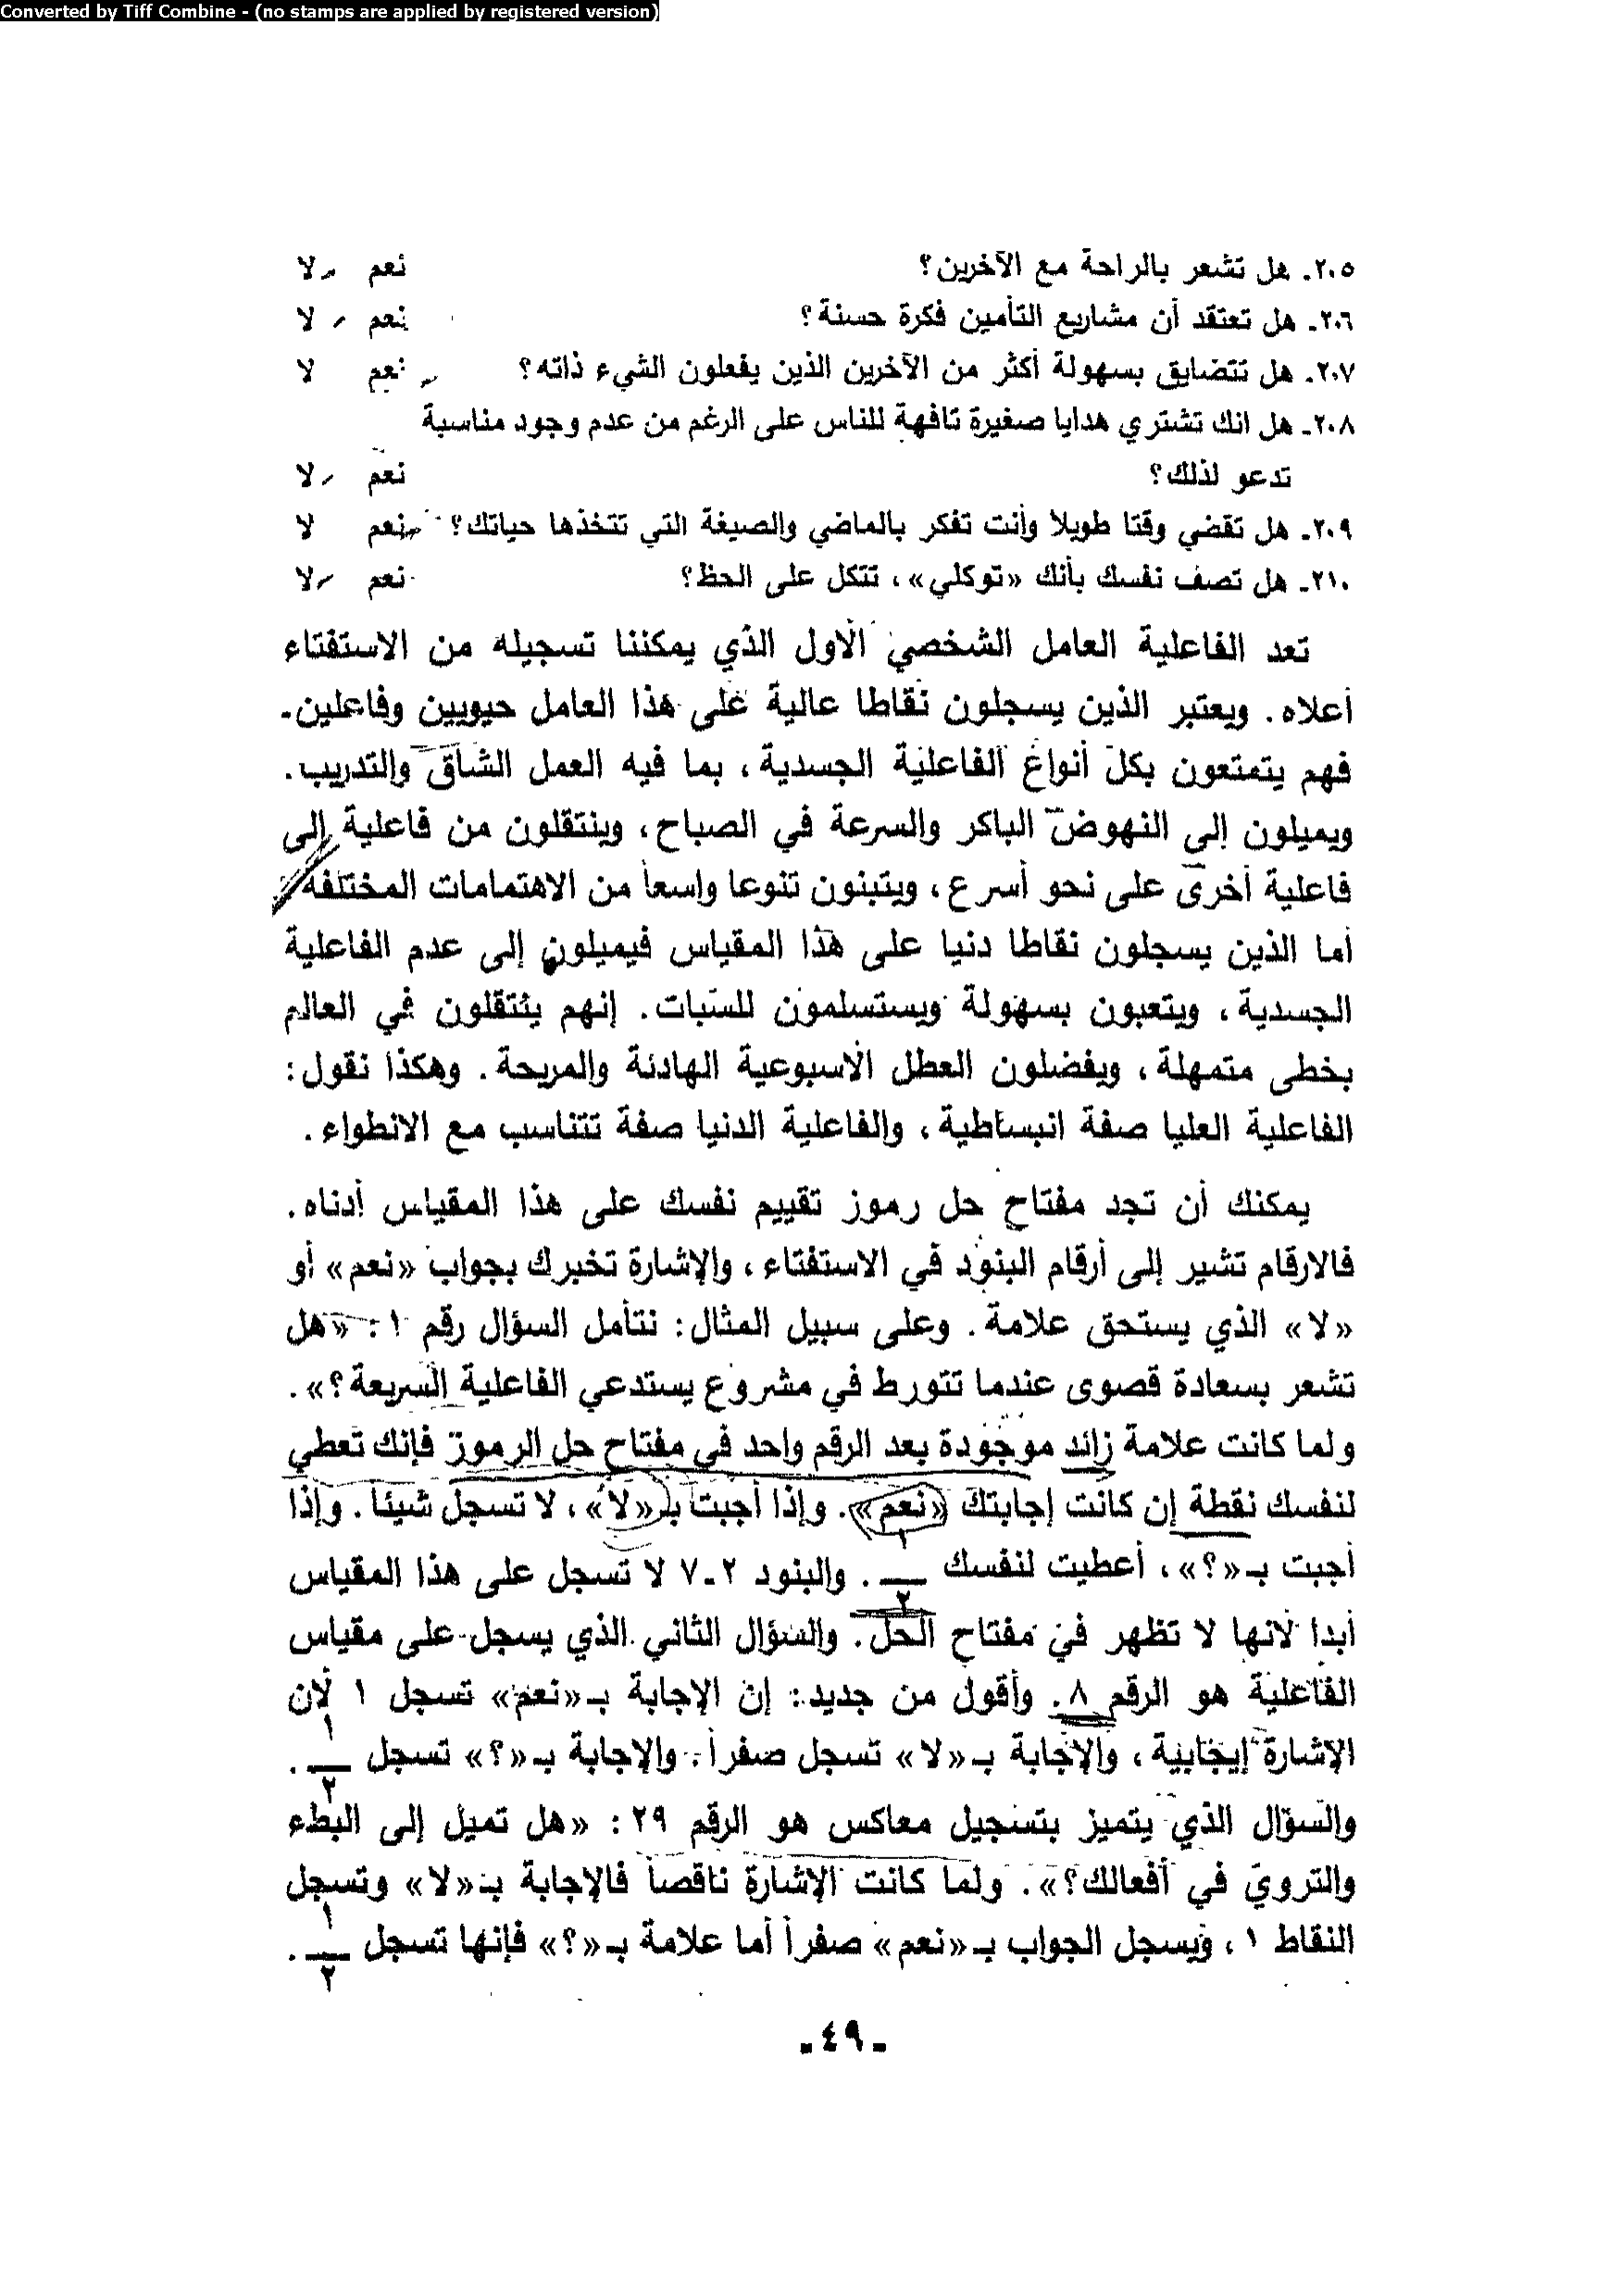 Converted by Tiff Combine - (no stamps are applied by registered version)
٢٠٥ـ هل تشعر بالراحة مع الآخرين؟ نعم لا
٢٠٦ـ هل تعتقد أن مشاريع التأمين فكرة حسنة؟ نعم لا
٢٠٧ـ هل تتضايق بسهولة أكثر من الآخرين الذين يفعلون الشيء ذاته؟ نعم لا
٢٠٨ـ هل انك تشتري هدايا صغيرة تافهة للناس على الرغم من عدم وجود مناسبة
تدعو لذلك؟ نعم لا
٢٠٩ـ هل تقضي وقتا طويلا وأنت تفكر بالماضي والصيغة التي تتخذها حياتك؟ نعم لا
٢١٠ـ هل تصف نفسك بأنك «توكلي»، تتكل على الحظ؟ نعم لا
تعد الفاعلية العامل الشخصي الأول الذي يمكننا تسجيله من الاستفتاء
أعلاه. ويعتبر الذين يسجلون نقاطا عالية على هذا العامل حيويين وفاعلين ـ
فهم يتمتعون بكل أنواع الفاعلية الجسدية، بما فيه العمل الشاق والتدريب.
ويميلون إلى النهوض الباكر والسرعة في الصباح، وينتقلون من فاعلية إلى
فاعلية أخرى على نحو أسرع، ويتبنون تنوعا واسعاً من الاهتمامات المختلفة.
أما الذين يسجلون نقاطا دنيا على هذا المقياس فيميلون إلى عدم الفاعلية
الجسدية، ويتعبون بسهولة ويستسلمون للسبات. إنهم ينتقلون في العالم
بخطى متمهلة، ويفضلون العطل الأسبوعية الهادئة والمريحة. وهكذا نقول:
الفاعلية العليا صفة انبساطية، والفاعلية الدنيا صفة تتناسب مع الانطواء.
يمكنك أن تجد مفتاح حل رموز تقييم نفسك على هذا المقياس أدناه.
فالارقام تشير إلى أرقام البنود في الاستفتاء، والإشارة تخبرك بجواب «نعم» أو
«لا» الذي يستحق علامة. وعلى سبيل المثال: نتأمل السؤال رقم ١: «هل
تشعر بسعادة قصوى عندما تتورط في مشروع يستدعي الفاعلية السريعة؟».
ولما كانت علامة زائد موجودة بعد الرقم واحد في مفتاح حل الرموز فإنك تعطي
لنفسك نقطة إن كانت إجابتك «نعم». وإذا أجبت بـ «لا»، لا تسجل شيئاً. وإذا
أجبت بـ «؟»، أعطيت لنفسك ١/٢. والبنود ٢ـ٧ لا تسجل على هذا المقياس
أبدا لأنها لا تظهر في مفتاح الحل. والسؤال الثاني الذي يسجل على مقياس
الفاعلية هو الرقم ٨. وأقول من جديد: إن الإجابة بـ «نعم» تسجل ١ لأن
الإشارة إيجابية، والإجابة بـ «لا» تسجل صفراً. والإجابة بـ «؟» تسجل ١/٢.
والسؤال الذي يتميز بتسجيل معاكس هو الرقم ٢٩: «هل تميل إلى البطء
والتروي في أفعالك؟». ولما كانت الإشارة ناقصاً فالإجابة بـ «لا» وتسجل
النقاط ١، ويسجل الجواب بـ «نعم» صفراً أما علامة بـ «؟» فإنها تسجل ١/٢.
ـ ٤٩ ـ